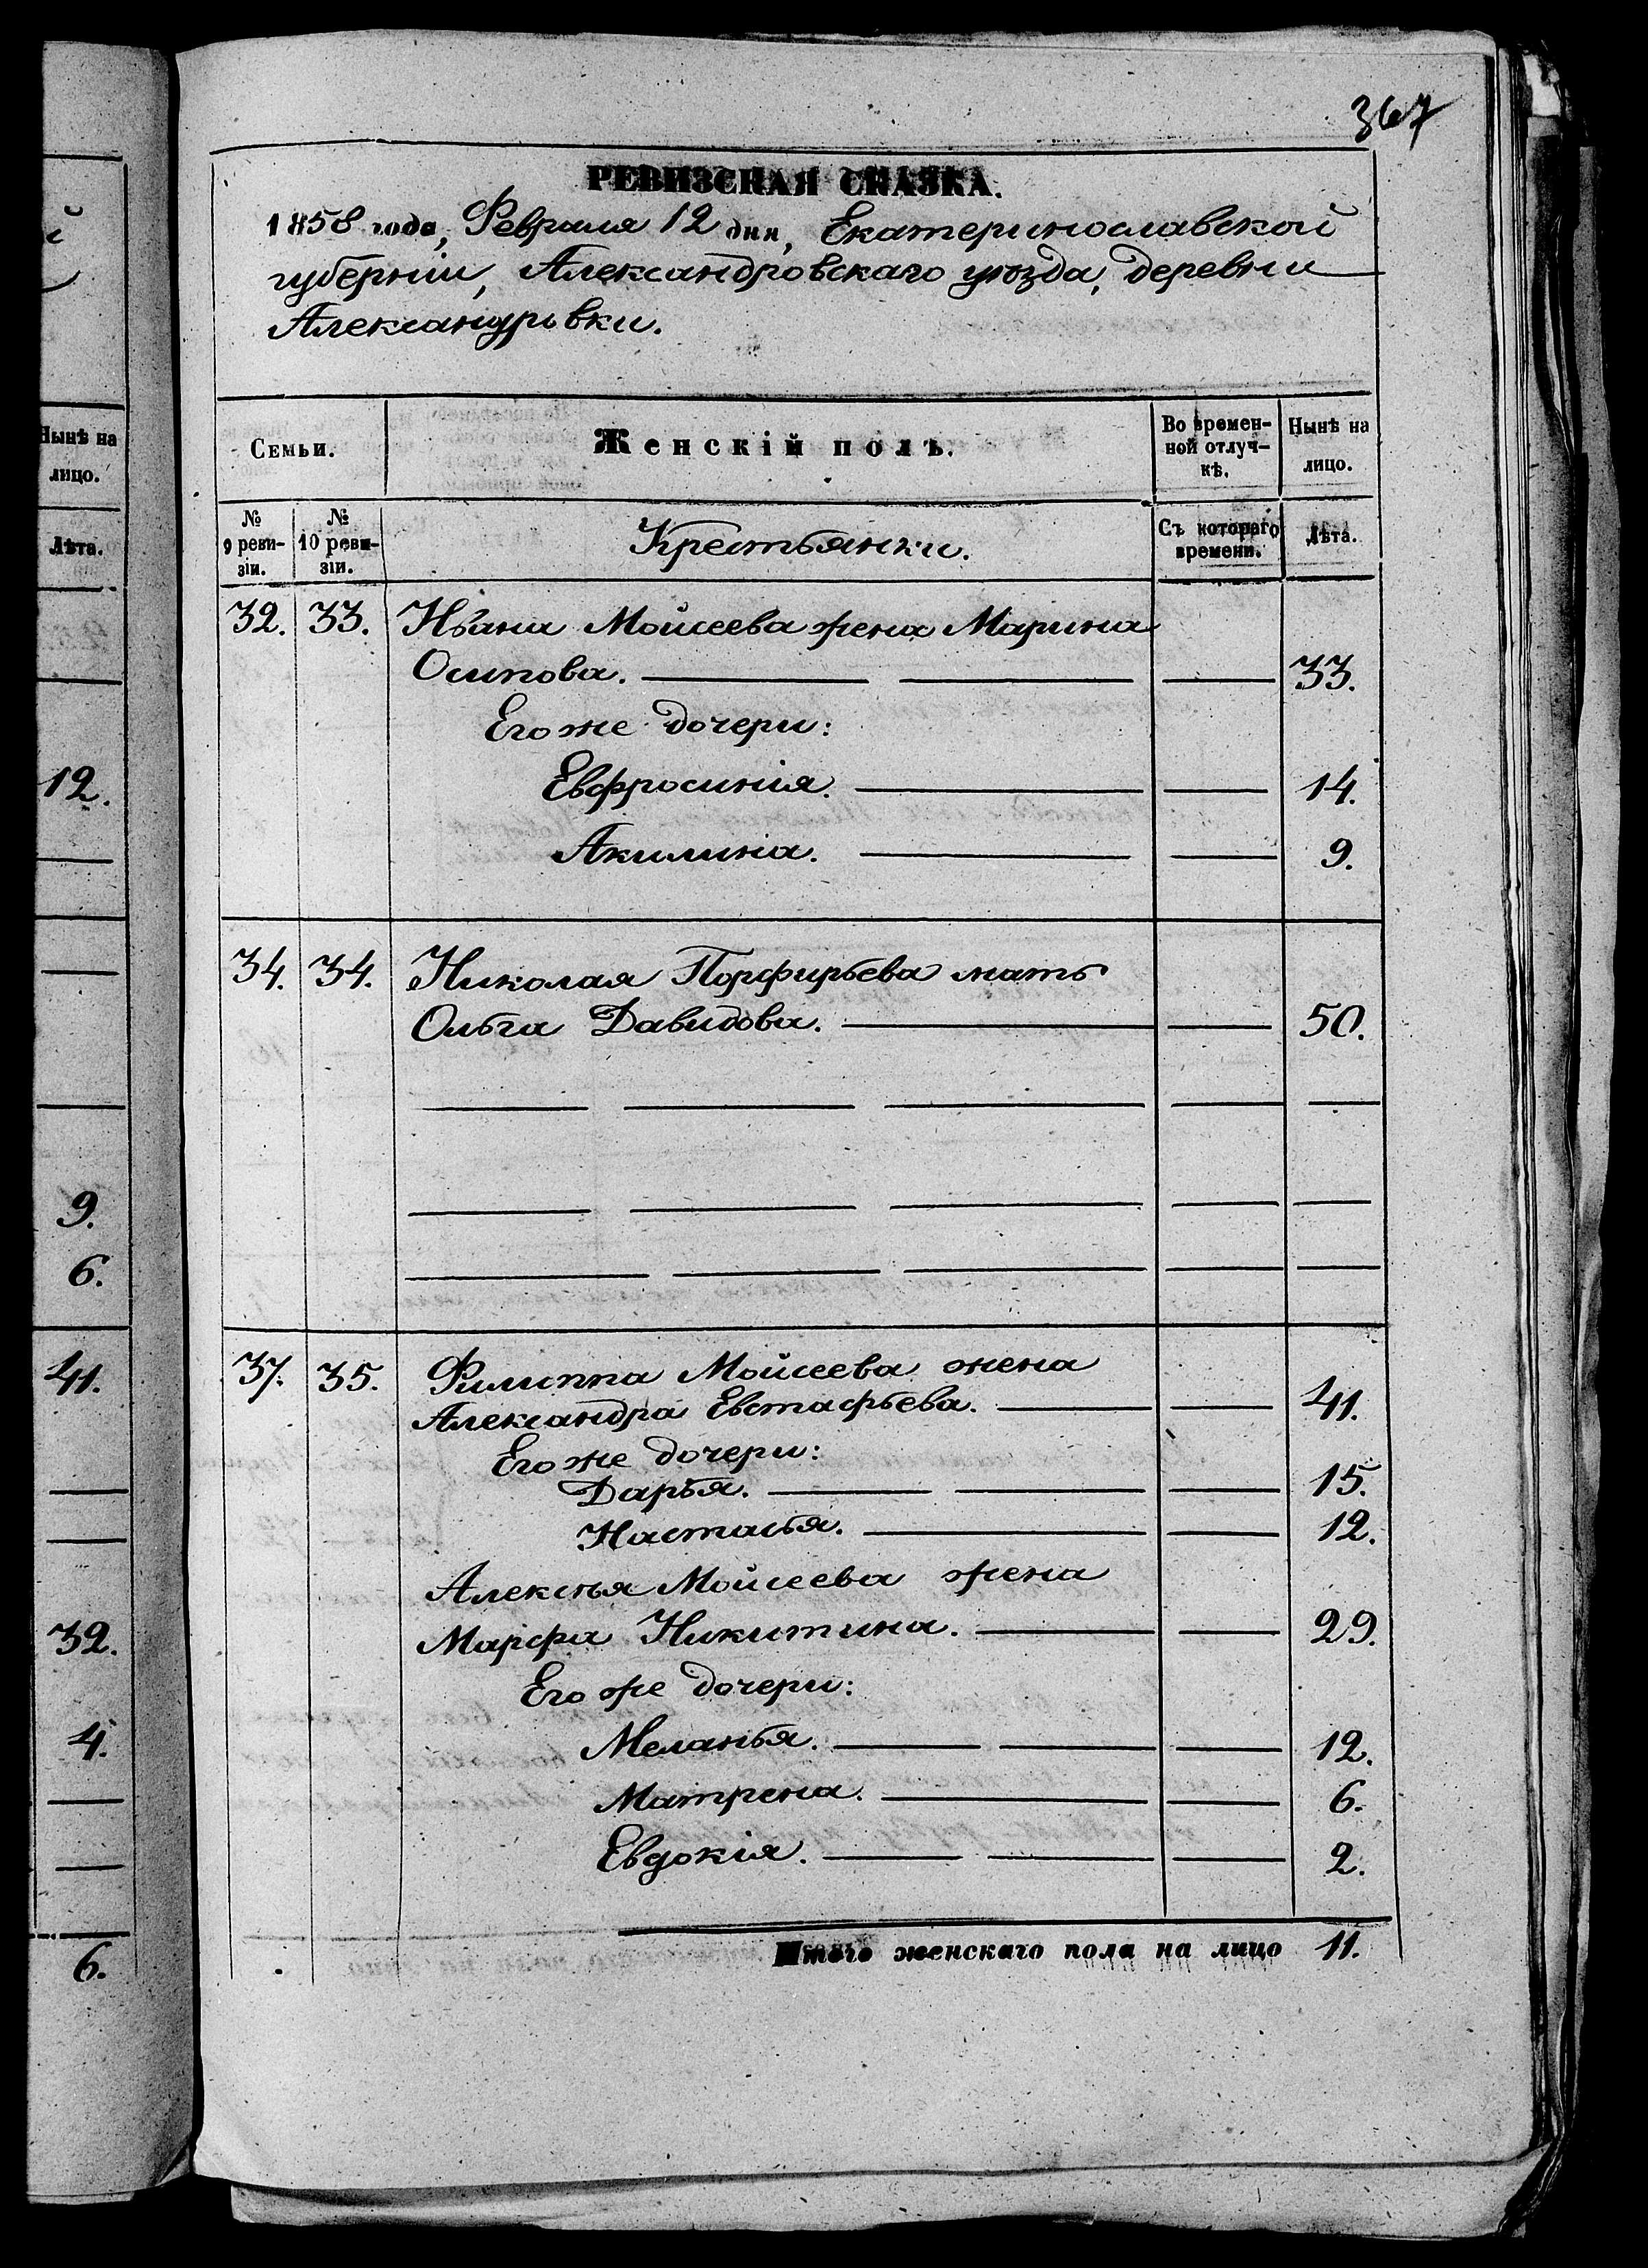 367
РЕВИЗСКАЯ СКАЗКА.
1858 года, Февраля 12 дня, Екатеринославской
губерніи, Александровскаго уѣзда, деревни
Александровки.
Нынѣ на
лицо.
Лѣта.
12.
9.
6.
41.
32.
4.
6.
Семьи.
Женскій полъ.
Во времен-
ной отлуч-
кѣ.
Нынѣ на
лицо.
№
9 реви-
зіи.
№
10 реви-
зіи.
Крестьянки.
Съ котораго
времени.
Лѣта.
32. 33. Ивана Мойсеева жена Марина
Осипова. 33.
Его же дочери:
Евфросинія. 14.
Акилина. 9.
34. 34. Николая Порфирьева мать
Ольга Давидова. 50.
37. 35. Филиппа Мойсеева жена
Александра Евстафьева. 41.
Его же дочери:
Дарья. 15.
Настасья. 12.
Алексѣя Мойсеева жена
Марфа Никитина. 29.
Его же дочери:
Меланья. 12.
Матрена. 6.
Евдокія. 2.
Итого женскаго пола на лицо 11.